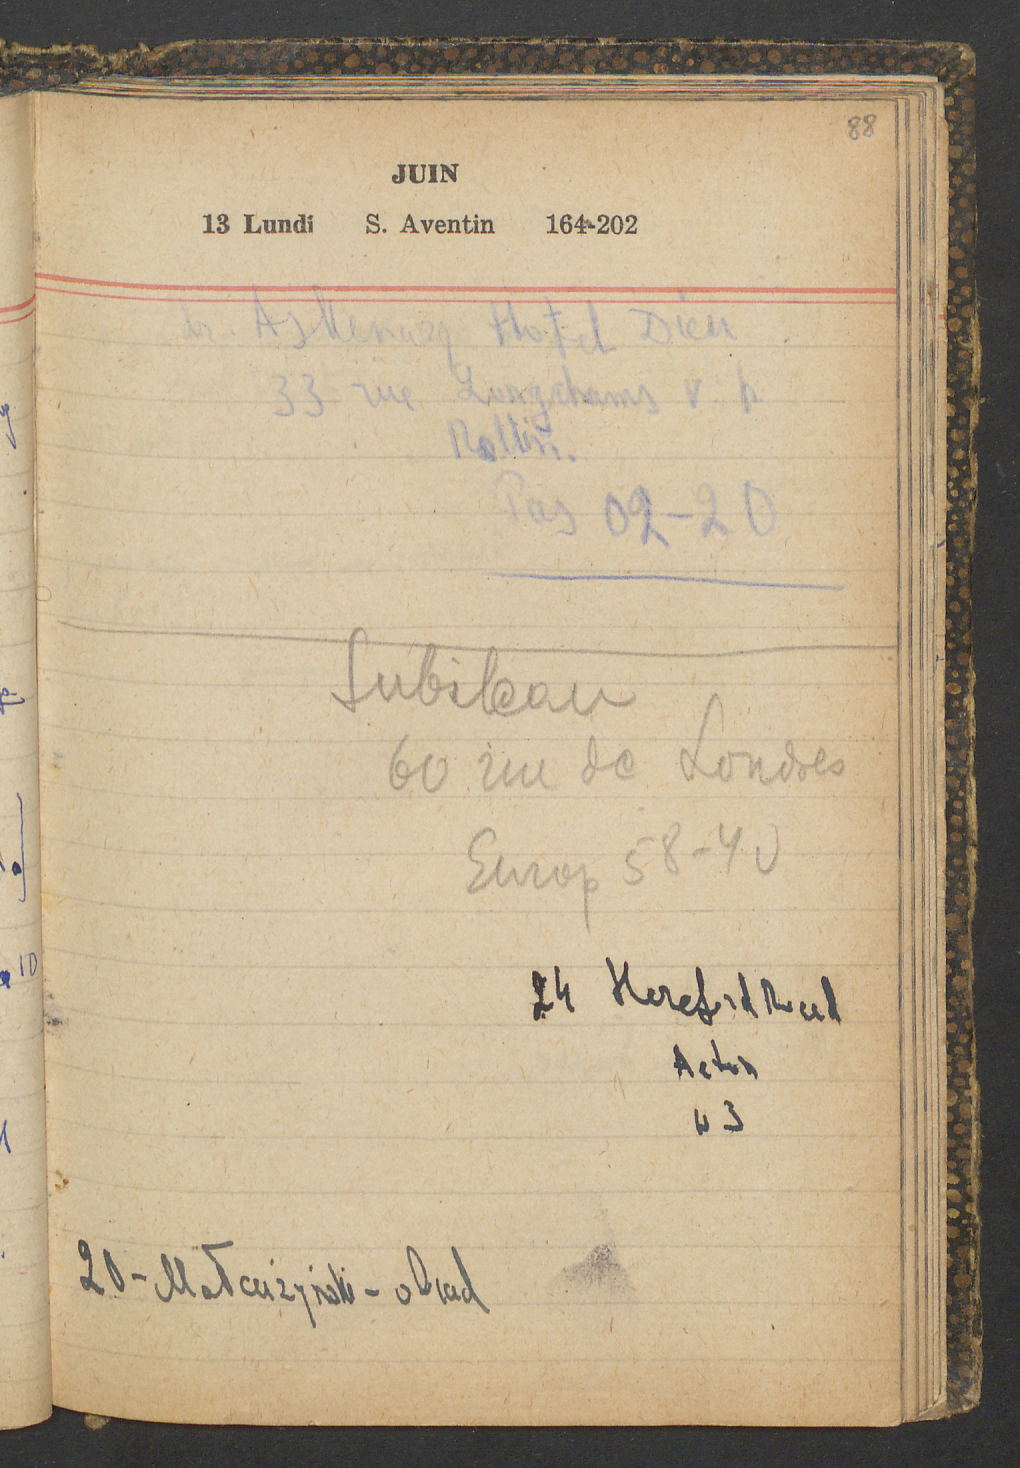 88
JUIN
13 Lundi S. Aventin 164-202
dr. Askenazy Hotel Dieu
33 rue Longchams v. p.
Pas 02-20
60 rue de Londres
Europ 58-40
24 Hereford Road
Acton
W 3
20 - Małcużyński - obiad